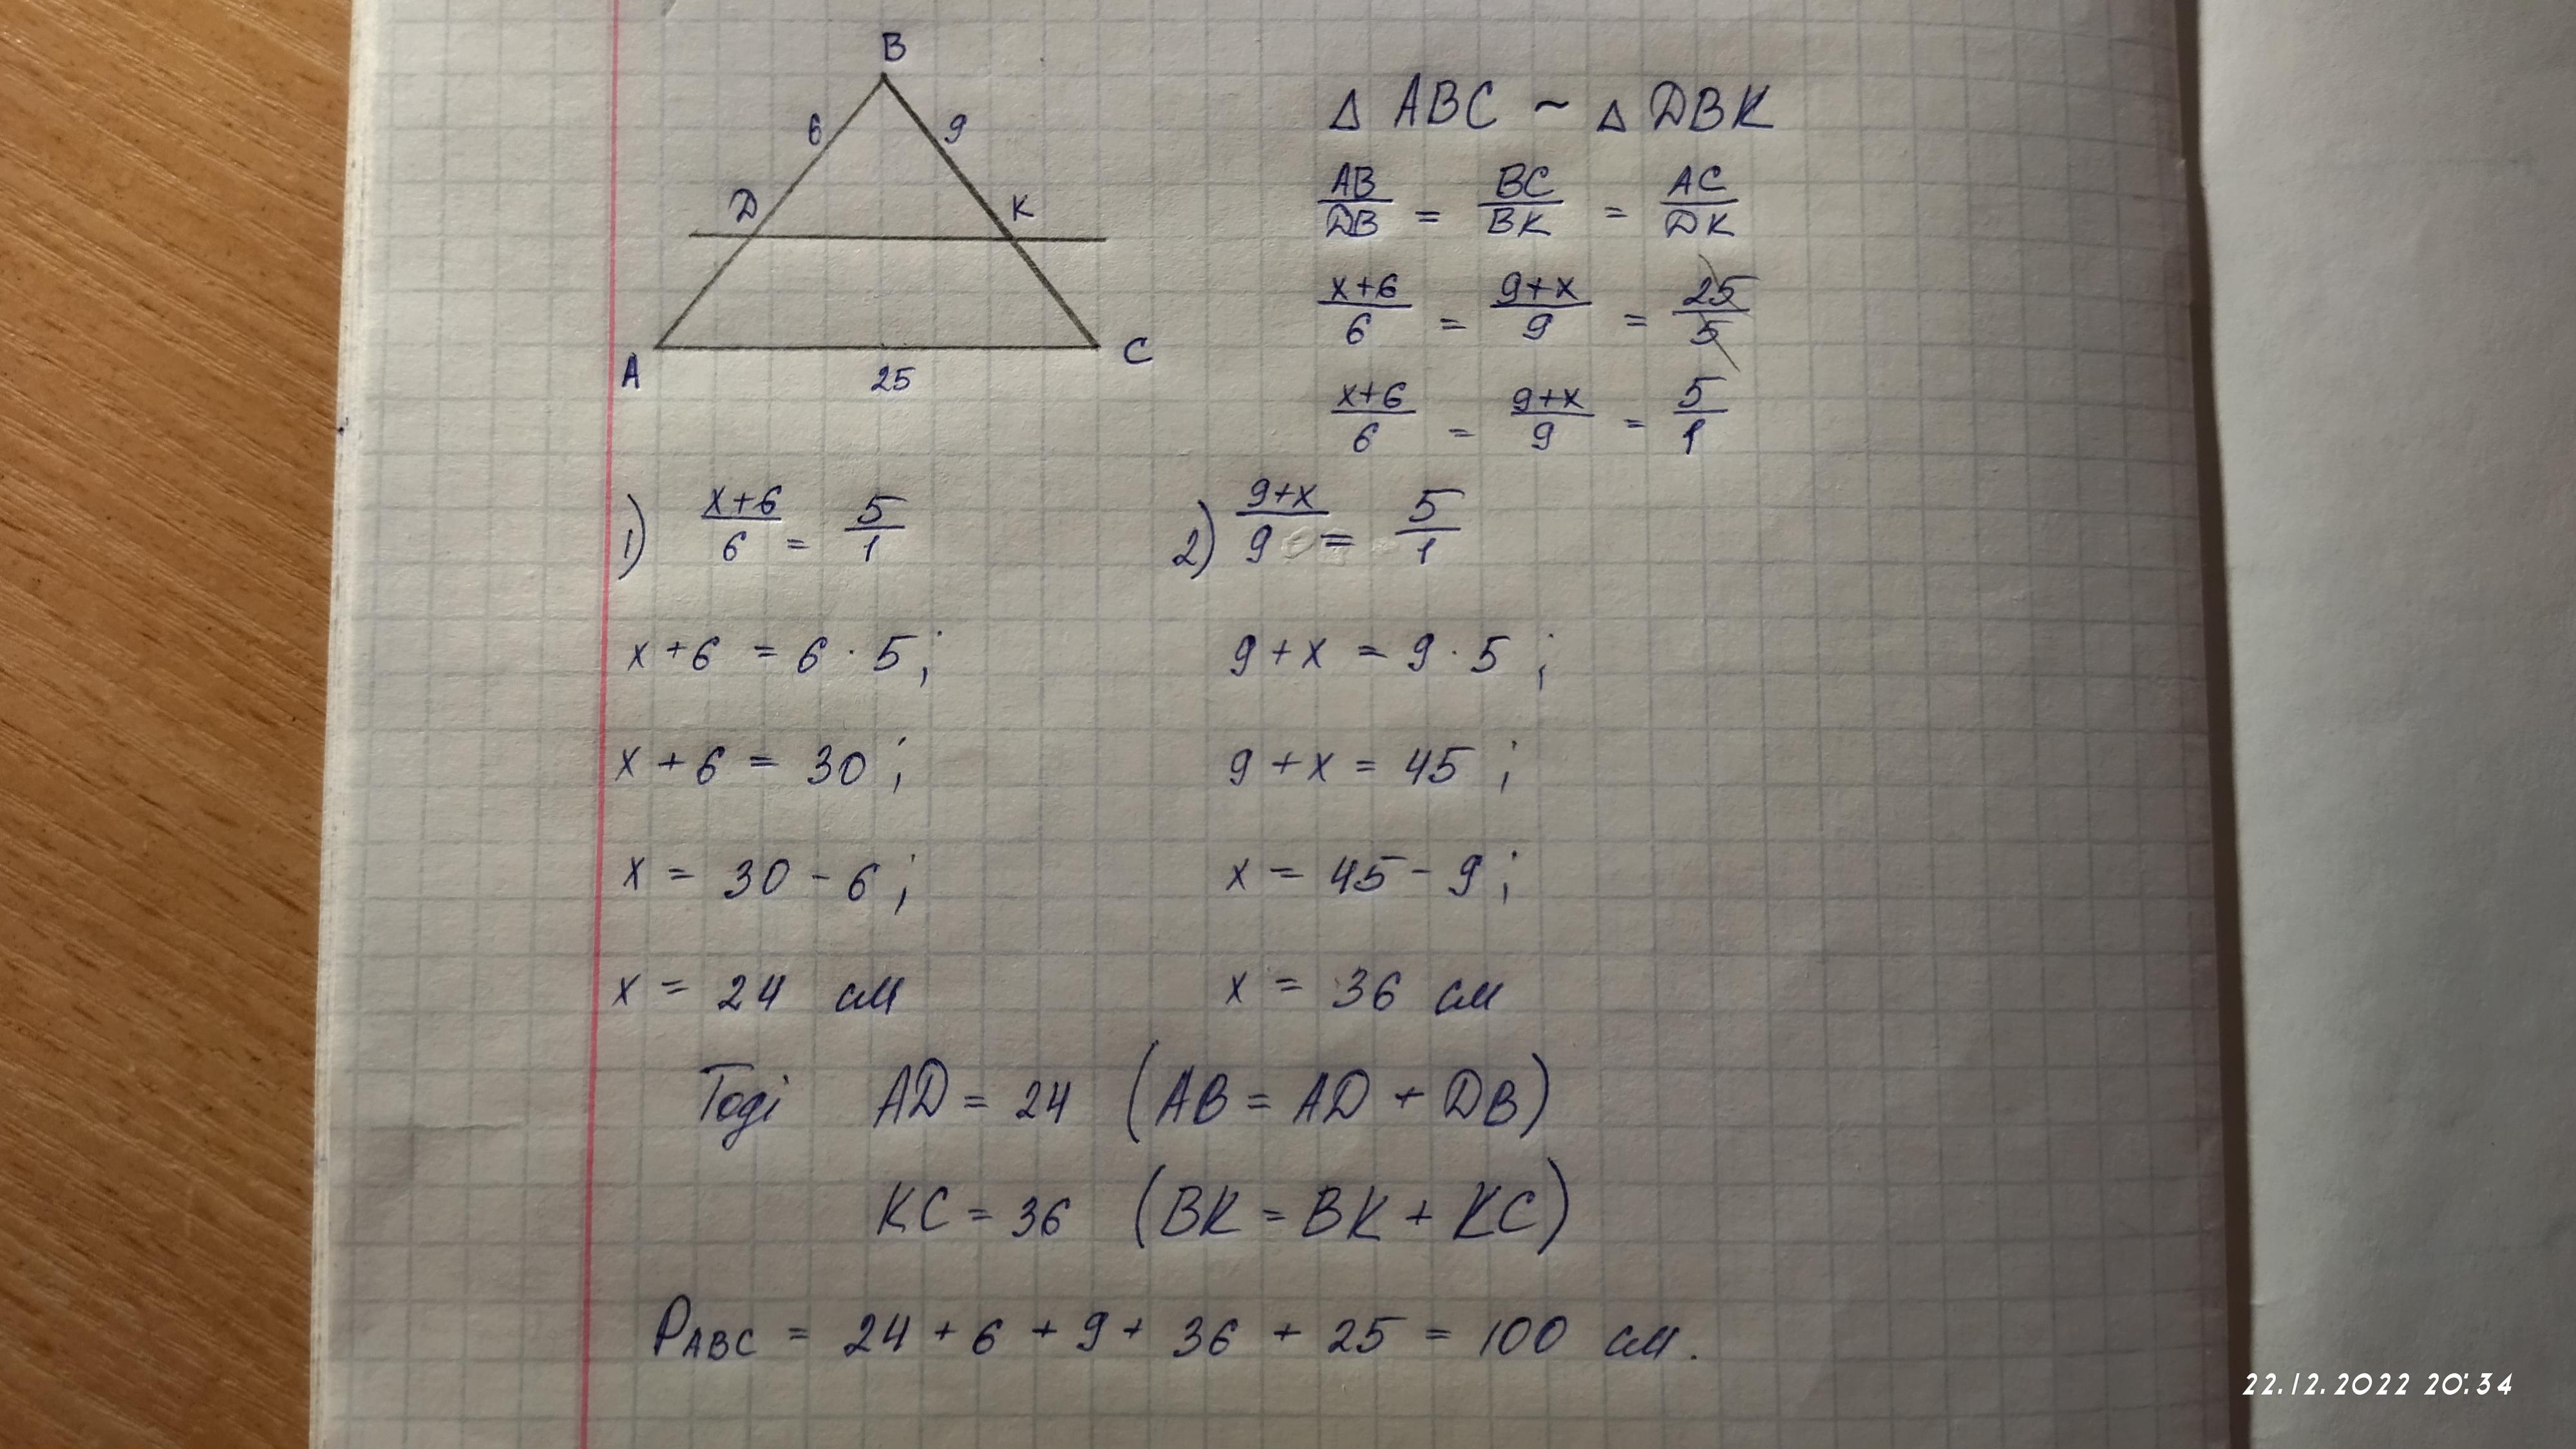 B
6 9
D K
A 25 C
△ ABC ~ △ DBK
AB/DB = BC/BK = AC/DK
x+6/6 = 9+x/9 = 25/5
x+6/6 = 9+x/9 = 5/1
1) x+6/6 = 5/1
x+6 = 6 · 5;
x + 6 = 30;
x = 30 - 6;
x = 24 см
2) 9+x/9 = 5/1
9 + x = 9 · 5;
9 + x = 45;
x = 45 - 9;
x = 36 см
Тоді AD = 24 (AB = AD + DB)
KC = 36 (BK = BK + KC)
PABC = 24 + 6 + 9 + 36 + 25 = 100 см.
22.12.2022 20:34